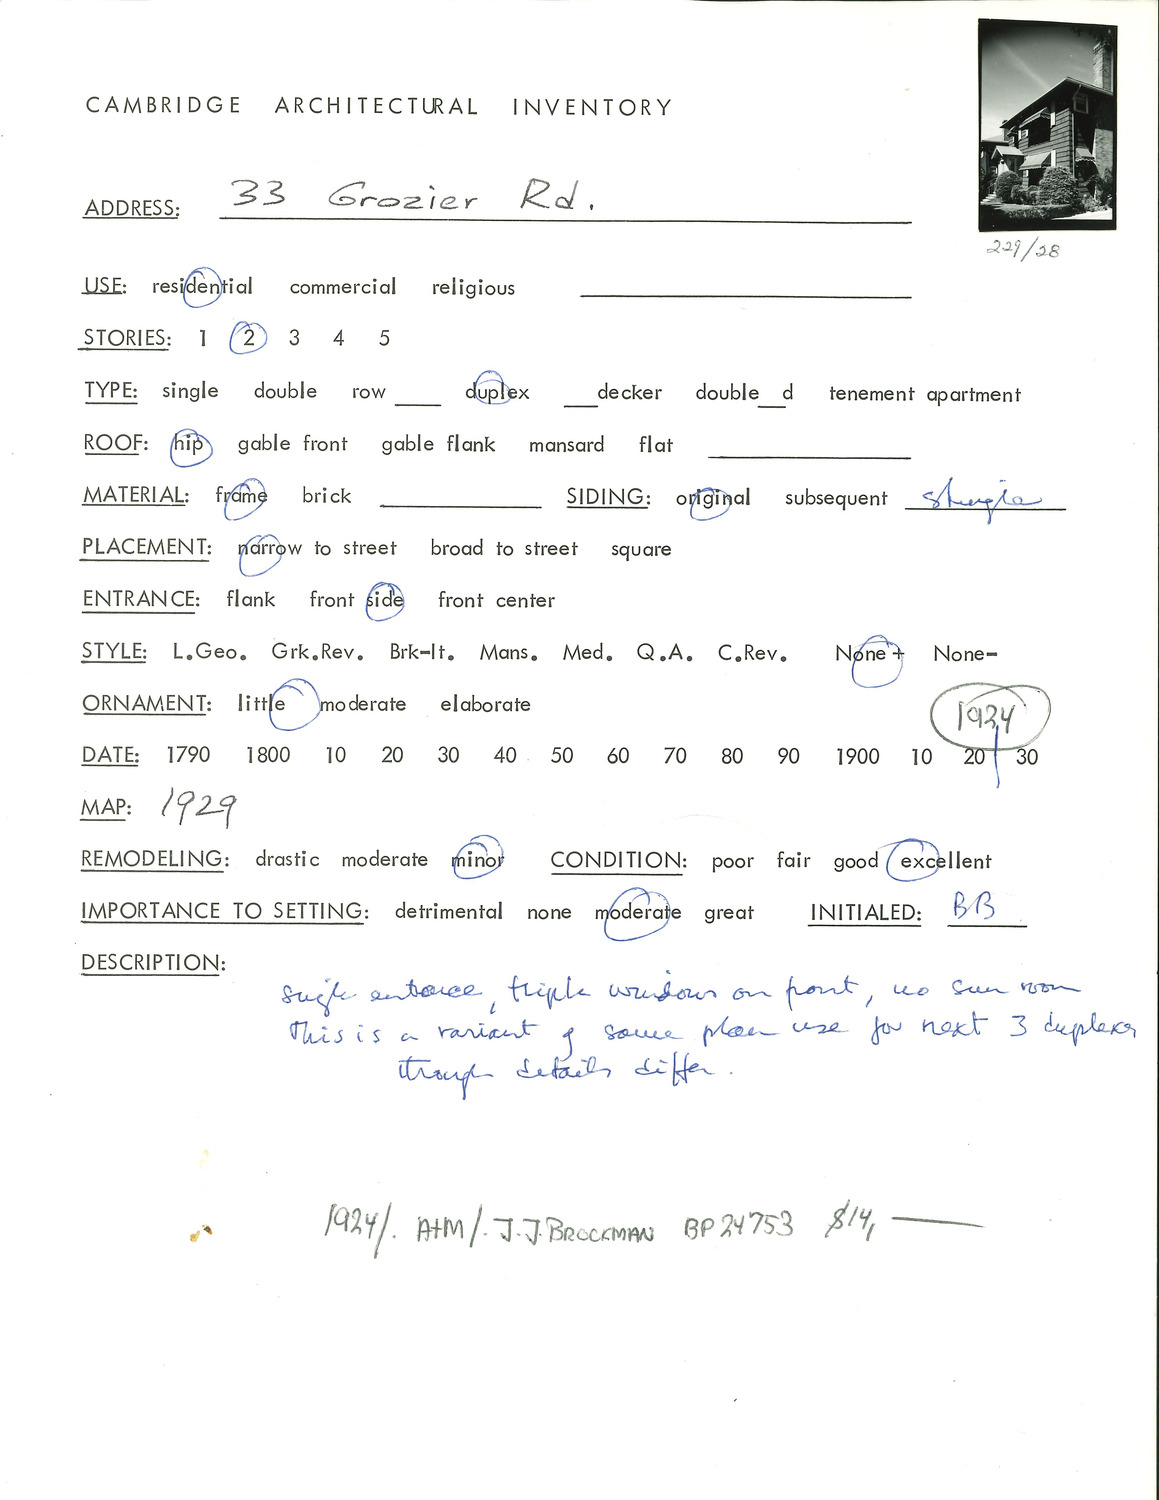 CAMBRIDGE ARCHITECTURAL INVENTORY
229/28
ADDRESS: 33 Grozier Rd.
USE: residential commercial religious
STORIES: 1 2 3 4 5
TYPE: single double row ____ duplex ___decker double__d tenement apartment
ROOF: hip gable front gable flank mansard flat
MATERIAL: frame brick SIDING: original subsequent shingle
PLACEMENT: narrow to street broad to street square
ENTRANCE: flank front side front center
STYLE: L.Geo. Grk.Rev. Brk-It. Mans. Med. Q.A. C.Rev. None+ None-
ORNAMENT: little moderate elaborate
1924
DATE: 1790 1800 10 20 30 40 50 60 70 80 90 1900 10 20 30
MAP: 1929
REMODELING: drastic moderate minor CONDITION: poor fair good excellent
IMPORTANCE TO SETTING: detrimental none moderate great INITIALED: BB
DESCRIPTION:
single entrance, triple windows on front, no sun room
This is a variant of same plan use for next 3 duplexes
though details differ.
1924/. A+M/. J.J. BROCKMAN BP 24753 $14, —